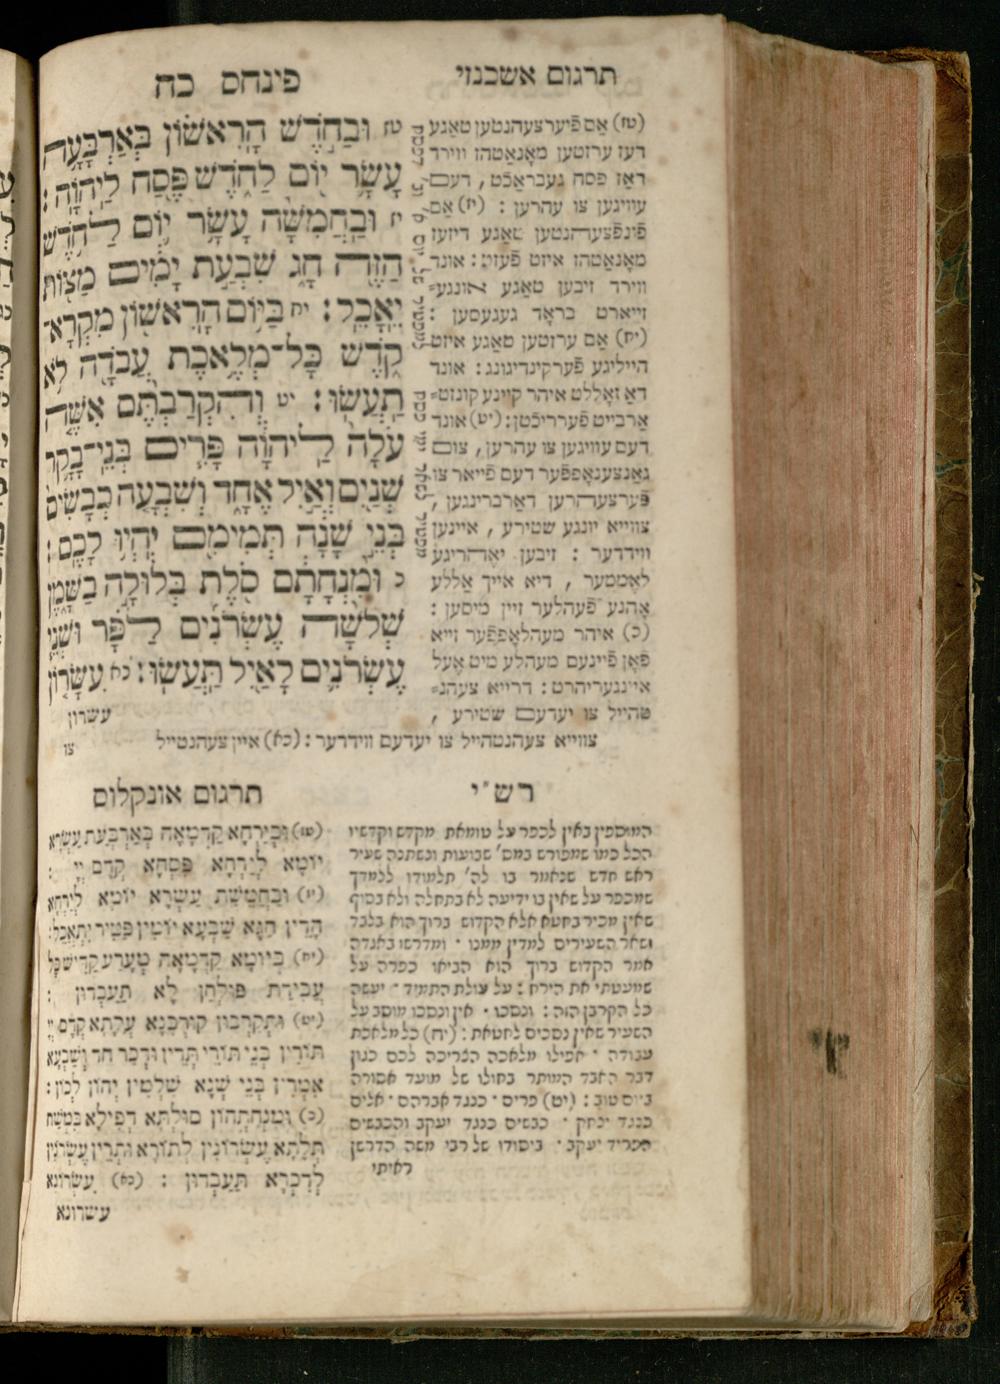 תרגום אשכנזי
פינחס כח
(טז) אַם פֿיערצעהנטען טאַגע
דעז ערזטען מאָנאַטהז ווירד
דאַז פסח געבראַכֿט, דעם
עוויגען צו עהרען : (יז) אַם
פֿינפֿצעהנטען טאַגע דיזעז
מאָנאַטהז איזט פֿעזט : אונד
ווירד זיבען טאַגע אונגע־
זייארט בראָד געגעסען :
(יח) אַם ערזטען טאַגע איזט
הייליגע פֿערקינדיגונג : אונד
דאַ זאָללט איהר קיינע קונזט־
אַרבייט פֿעררייכטן : (יט) אונד
דעם עוויגען צו עהרען, צום
גאַנצענאָפּפֿער דעם פֿייאר צו
פֿערצעהרען דאַרברינגען,
צווייא יונגע שטירע, איינען
ווידדער : זיבען יאָהריגע
לאַממער, דיא אייך אַללע
אָהנע פֿעהלער זיין מיסען :
(כ) איהר מעהלאָפּפֿער זייא
פֿאָן פֿיינעם מעהלע מיט אָעל
איינגעריהרט : דרייא צעהנ־
טהייל צו יעדעם שטירע,
צווייא צעהנטהייל צו יעדעם ווידדער : (כא) איין צעהנטייל
צו
טז וּבַחֹדֶשׁ הָרִאשׁוֹן בְּאַרְבָּעָה
עָשָׂר יוֹם לַחֹדֶשׁ פֶּסַח לַיהוָֹה :
יז וּבַחֲמִשָּׁה עָשָׂר יוֹם לַחֹדֶשׁ
הַזֶּה חָג שִׁבְעַת יָמִים מַצּוֹת
יֵאָכֵל : יח בַּיּוֹם הָרִאשׁוֹן מִקְרָא־
קֹדֶשׁ כָּל־מְלֶאכֶת עֲבֹדָה לֹא
תַעֲשׂוּ : יט וְהִקְרַבְתֶּם אִשֶּׁה
עֹלָה לַיהוָֹה פָּרִים בְּנֵי־בָקָר
שְׁנַיִם וְאַיִל אֶחָד וְשִׁבְעָה כְבָשִׂים
בְּנֵי שָׁנָה תְּמִימִם יִהְיוּ לָכֶם :
כ וּמִנְחָתָם סֹלֶת בְּלוּלָה בַשָּׁמֶן
שְׁלֹשָׁה עֶשְׂרֹנִים לַפָּר וּשְׁנֵי
עֶשְׂרֹנִים לָאַיִל תַּעֲשׂוּ : כא עִשָּׂרוֹן
עשרון
רש"י
המוספין באין לכפר על טומאת מקדש וקדשיו
הכל כמו שמפורש במס' שבועות ונשתנה שעיר
ראש חדש שנאמר בו לה' תלמודו ללמדך
שמכפר על שאין בו ידיעה לא בתחלה ולא בסוף
שאין מכיר בחטא אלא הקדוש ברוך הוא בלבד
ושאר השעירים למדין ממנו · ומדרשו באגדה
אמר הקדוש ברוך הוא הביאו כפרה עלי
שמעטתי את הירח : על עולת התמיד · יעשה
כל הקרבן הזה : ונסכו · אין ונסכו מוסב על
השעיר שאין נסכים לחטאת : (יח) כל מלאכת
עבודה · אפילו מלאכה הצריכה לכם כגון
דבר האבד המותר בחולו של מועד אסורה
ביום טוב : (יט) פרים · כנגד אברהם · אלים
כנגד יצחק · כבשים כנגד יעקב והכבשים
הפריד יעקב · ביסודו של רבי משה הדרשן
ראיתי
תרגום אונקלוס
(טז) וּבְיַרְחָא קַדְמָאָה בְּאַרְבְּעַת עַשְׂרָא
יוֹמָא לְיַרְחָא פִּסְחָא קֳדָם יְיָ :
(יז) וּבְחַמְשַׁת עַשְׂרָא יוֹמָא לְיַרְחָא
הָדֵין חַגָּא שַׁבְעָא יוֹמִין פַּטִּיר יִתְאֲכֵל :
(יח) בְּיוֹמָא קַדְמָאָה מְעָרַע קַדִּישׁ כָּל
עֲבִידַת פּוּלְחַן לָא תַעַבְדוּן :
(יט) וּתְקָרְבוּן קוּרְבָּנָא עֲלָתָא קֳדָם יְיָ
תּוֹרִין בְּנֵי תוֹרֵי תְּרֵין וּדְכַר חַד וְשַׁבְעָא
אִמְּרִין בְּנֵי שְׁנָא שַׁלְמִין יְהוֹן לְכוֹן :
(כ) וּמִנְחָתְהוֹן סוּלְתָּא דְּפִילָא בִמְשַׁח
תְּלָתָא עֶשְׂרוֹנִין לְתוֹרָא וּתְרֵין עֶשְׂרוֹנִין
לְדִכְרָא תַּעַבְדוּן : (כא) עִשְׂרוֹנָא
עשרונא